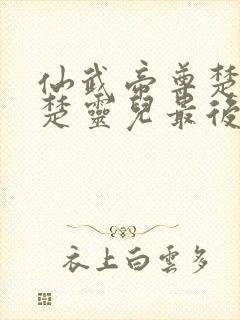 仙武帝尊楚
楚靈兒最後
衣上白雲多